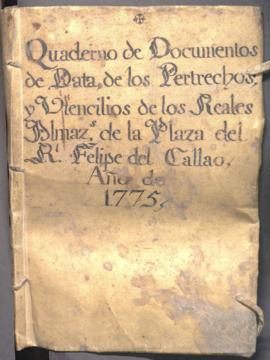 Quaderno de Documentos
de Data, de los Pertrechos,
y Vtencilios de los Reales
Almaz.s de la Plaza del
R.l Felipe del Callao.
Año de
1775,